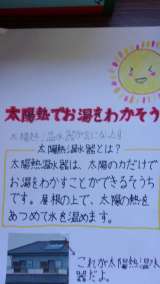 太陽熱でお湯をわかそう
太陽熱温水器とは?
太陽熱温水器は、太陽の力だけで
お湯をわかすことができるそうち
です。屋根の上で、太陽の熱を
あつめて水を温めます。
これが太陽熱温水
器だよ。